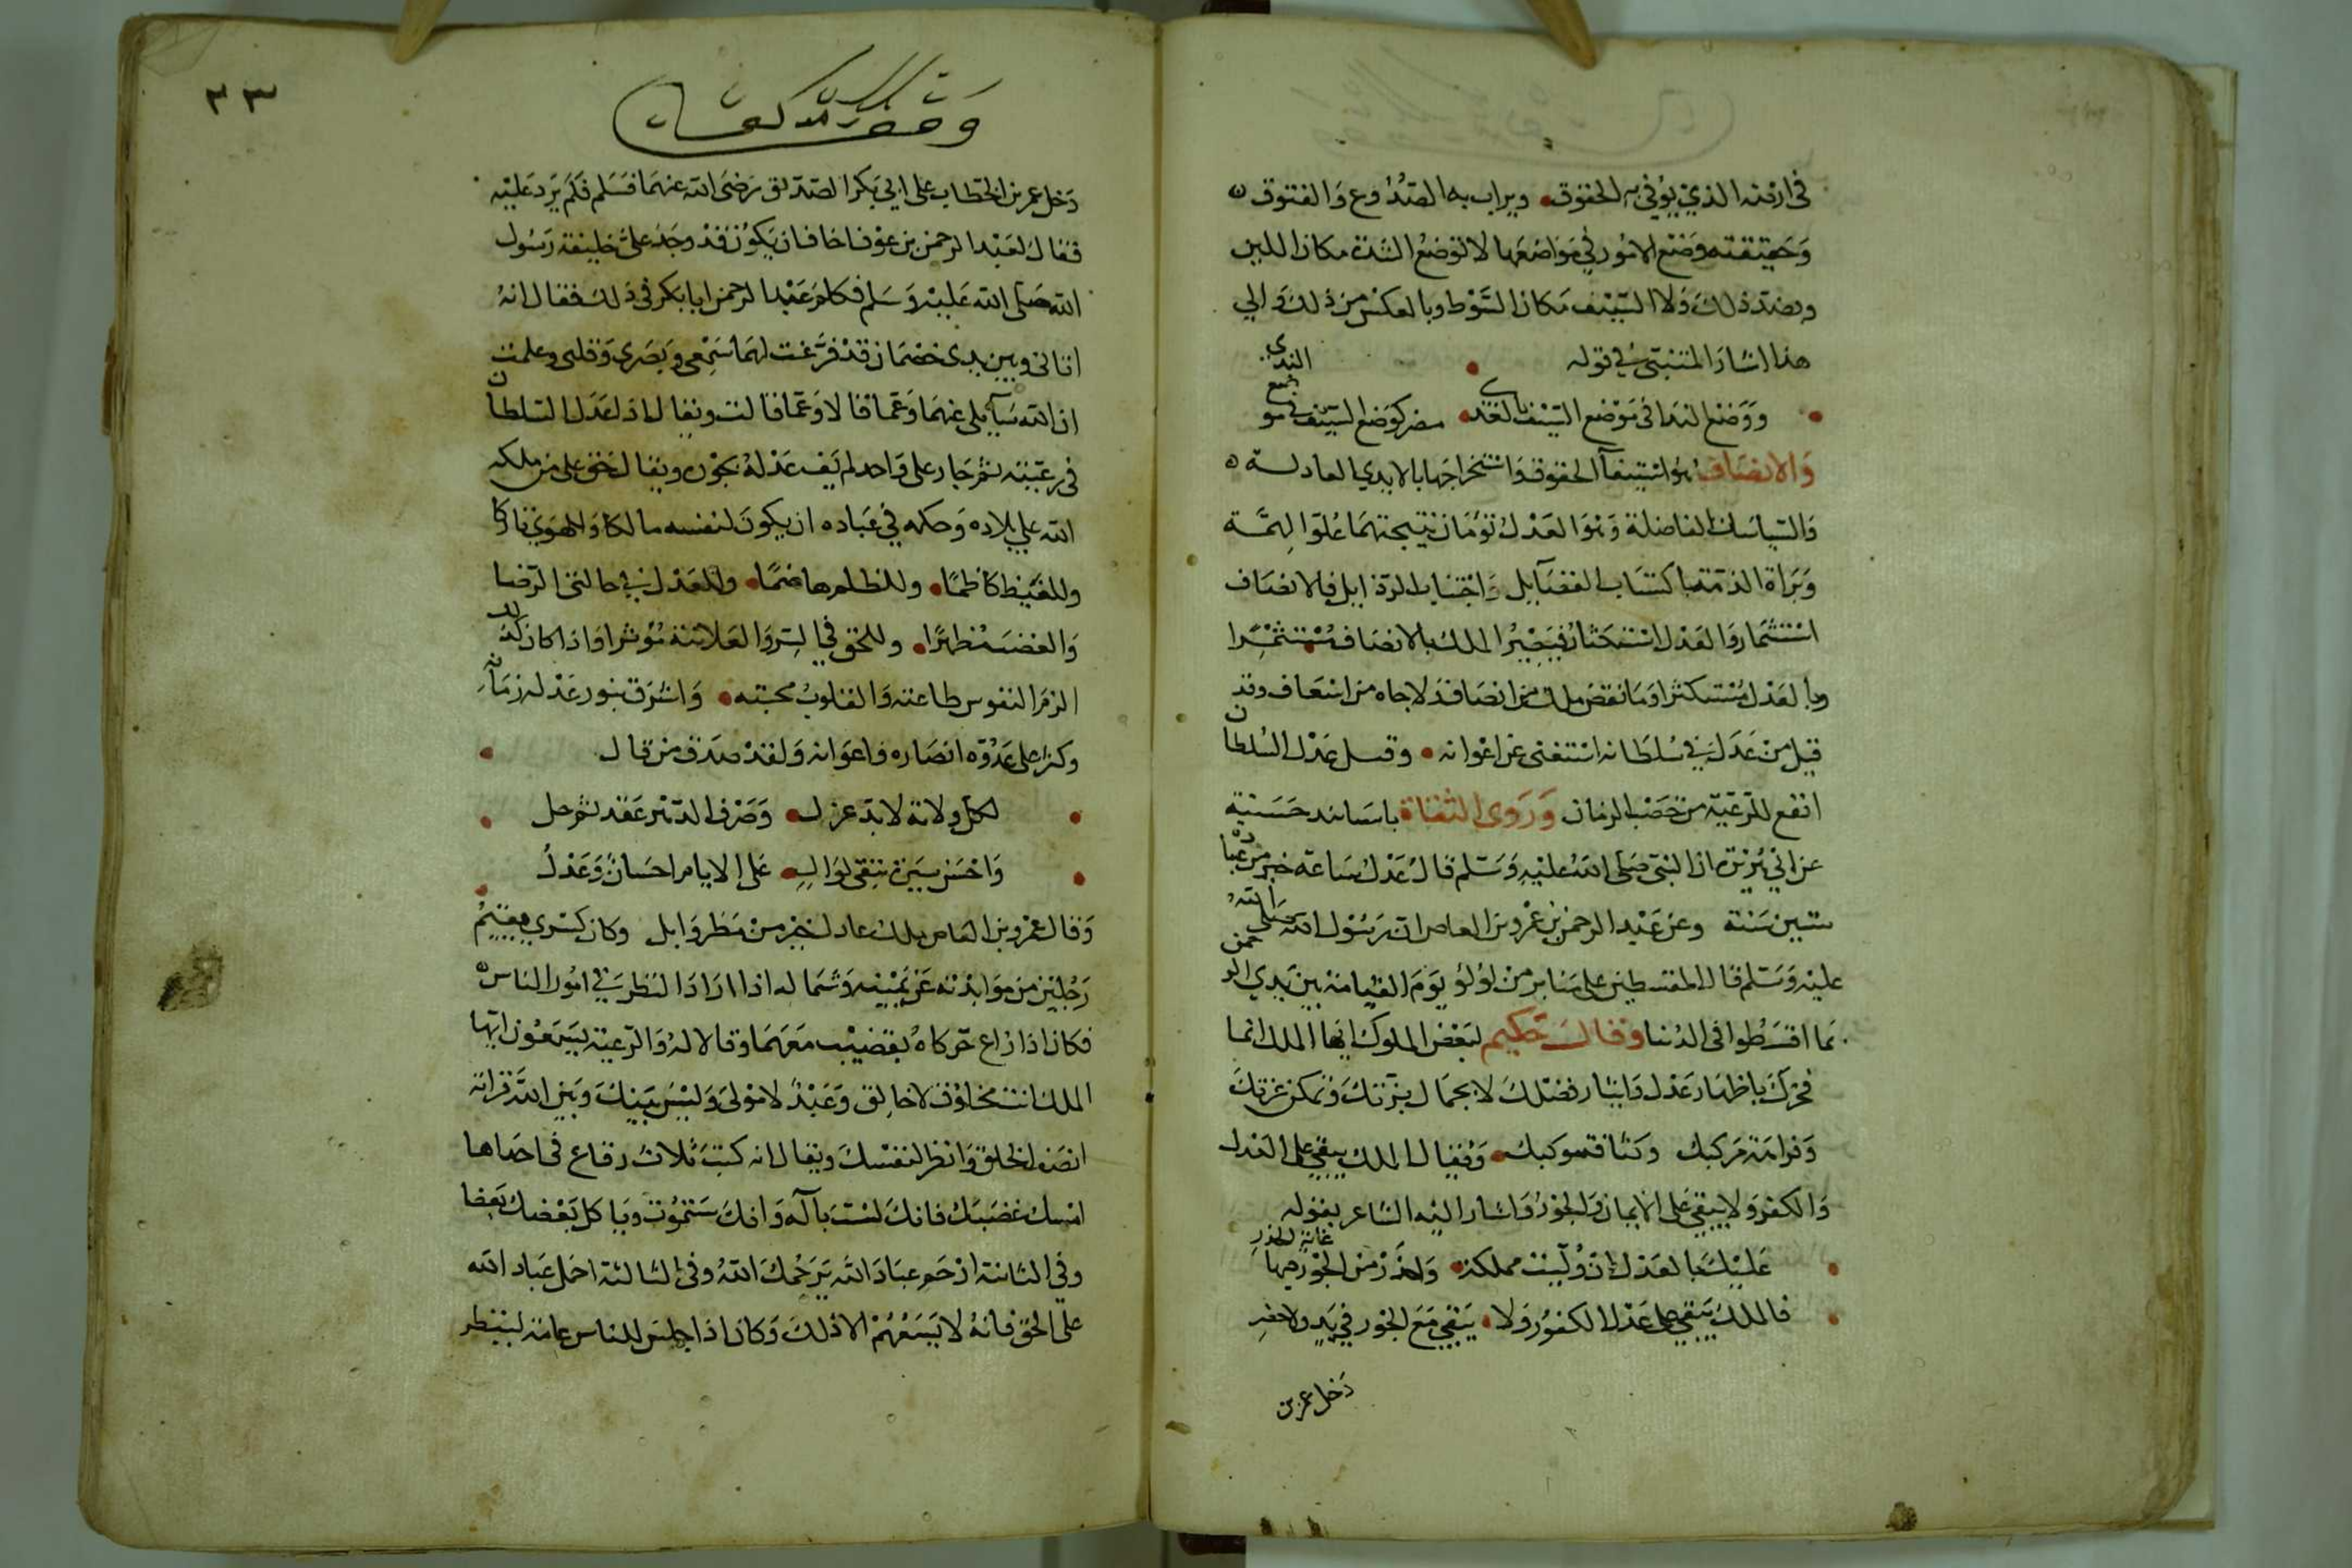 في ارضه الذي يوفي به الحقوق ويراب به الصدوع والفتوق
وحقيقته وضع الامور في مواضعها لا توضع الشدة مكان اللين
وبضد ذلك ولا السيف مكان السوط وبالعكس من ذلك والي
هذا اشار المتنبي في قوله
ووضع الندا في موضع السيف بالعدى مضر كوضع السيف في موضع الندى
والانصاف هو استيفآ الحقوق واستخراجها بالايدي العادلة
والسياسات الفاضلة وهو العدل تؤمان نتيجتهما علو الهمة
وبراة الذمة باكتساب الفضآيل واجتناب الرذايل فالانصاف
استثمار والعدل استكثار فيصير الملك بالانصاف مستثمرا
وبالعدل مستكثرا وما نقص ملك من انصاف ولا جاه من اسعاف وقد
قيل من عدل في سلطانه استغنى عن اعوانه وقيل عدل السلطان
انفع للرعية من خصب الزمان وروى الثقاة باسانيد حسنة
عن ابي هريرة ان النبي صلى الله عليه وسلم قال عدل ساعة خير من عبادة
ستين سنة وعن عبد الرحمن بن عمرو بن العاص ان رسول الله صلى الله
عليه وسلم قال المقسطين على منابر من لؤلؤ يوم القيامة بين يدي الرحمن
بما اقسطوا في الدنيا وقال حكيم لبعض الملوك ايها الملك انما
فخرك باظهار عدل وايثار فضلك لا بجمال بزتك وتمكن عزتك
وفراهة مركبك وكثافة موكبك وقيل الملك يبقي على العدل
والكفر ولا يبقي على الايمان والجور واشار اليه الشاعر بقوله
عليك بالعدل ان وليت مملكة واحذر من الجور فيها غاية الحذر
فالملك يبقي على عدل الكفور ولا يبقي مع الجور في بدو ولا حضر
دخل عمر بن
٣٣
دخل عمر بن الخطاب على ابي بكر الصديق رضى الله عنهما فسلم فلم يرد عليه
فقال لعبد الرحمن بن عوف اخاف ان يكون قد وجد علي خليفة رسول
الله صلى الله عليه وسلم فكلم عبد الرحمن ابا بكر في ذلك فقال انه
اتاني وبين يدى خصمان قد فرغت لهما سمعي وبصري وقلبي وعلمت
ان الله سآيلي عنهما وعما قالا وعما قالت ويقال اذا عدل السلطان
في رعيته ثم جار على واحد لم يف عدله بجوره ويقال حق على من ملكه
الله علي بلاده وحكمه في عباده ان يكون لنفسه مالكا وللهوي تاركا
وللغيظ كاظما وللظلم هاضما وللعدل في حالتى الرضا
والغضب مظهرا وللحق في السر والعلانية مؤثرا واذا كان كذلك
الزم النفوس طاعته والقلوب محبته واشرق بنور عدله زمانه
وكثر على عدوه انصاره واعوانه ولقد صدق من قال
لكل ولاية لا بد عزل وصرف الدهر عقد ثم حل
واحسن سيرة تبقى لوال على الايام احسان وعدل
وقال عمرو بن العاص ملك عادل خير من مطر وابل وكان كسري يقيم
رجلين من موابذته عن يمينه وشماله اذا اراد النظر في امور الناس
فكان اذا زاغ حركاه بقضيب معهما وقالا له والرعية يسمعون ايها
الملك انت مخلوق لا خالق وعبد لا مولى وليس بينك وبين الله قرابة
انصف الخلق وانظر لنفسك ويقال انه كتب ثلاث رقاع في احداها
امسك غضبك فانك لست بآله وانك ستموت وياكل بعضك بعضا
وفي الثانية ارحم عباد الله يرحمك الله وفي الثالثة احمل عباد الله
على الحق فانه لا يسعهم الا ذلك وكان اذا جلس للناس عامة لينظر